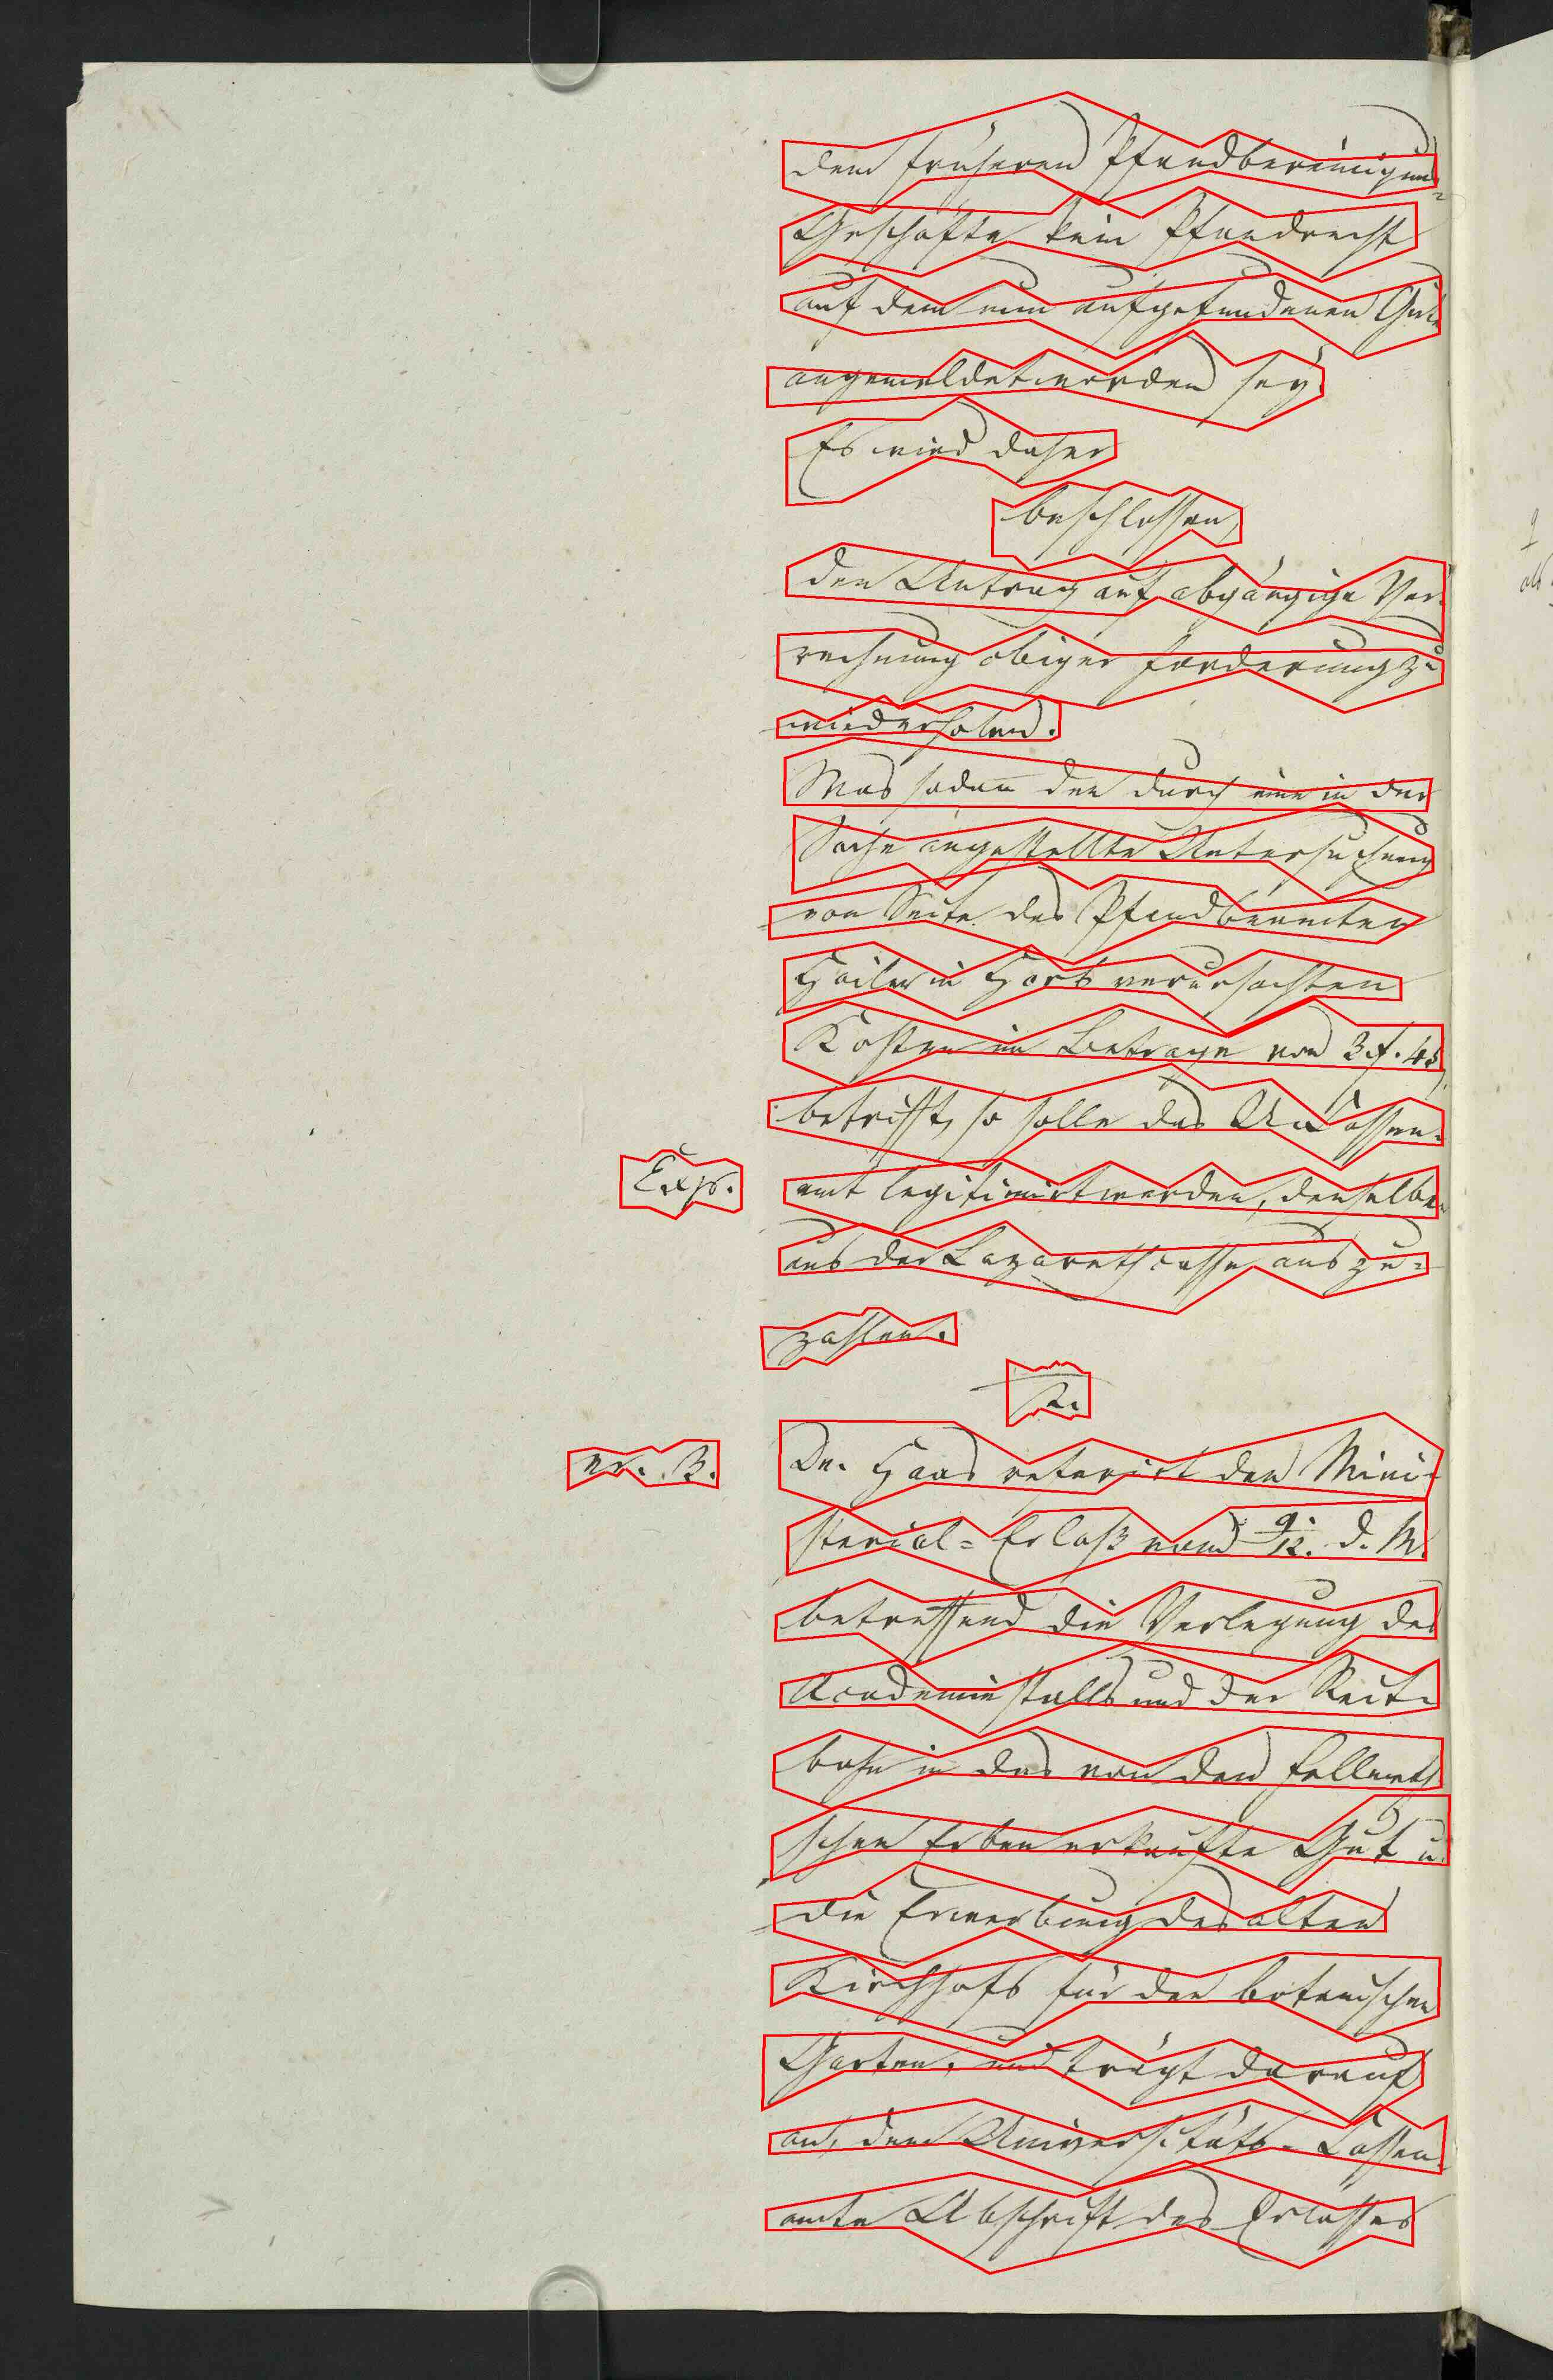 dem früheren Pfandbereinigungs-
Geschäfte kein Pfandrecht
auf dem nun aufgefundenen Gute
angemeldet worden sey.
Es wird daher
beschlossen,
den Antrag auf abgängige Ver-
rechnung obiger Forderung zu
wiederholen.
Was sodann den durch eine in der
Sache angestellte Untersuchung
von Seite des Pfandbeamten
Hailer in Horb verursachten
Kosten im Betrage von 3 f. 45
betrifft, so solle das Un. Cassen-
Exp.
amt legitimirt werden, denselben
aus der Lazarethcasse auszu-
zahlen.
2.
nr. 3.
Dr. Haas referirt den Mini-
sterial-Erlaß vom 9./12. d. M.
betreffend die Verlegung des
Academiestalls und der Reit-
bahn in das von den
schen Erben erkaufte Gut u.
die Erwerbung des alten
Kirchhofs für den botanischen
Garten, und trägt darauf
an, dem Universitäts-Cassen-
amte Abschrift des Erlasses